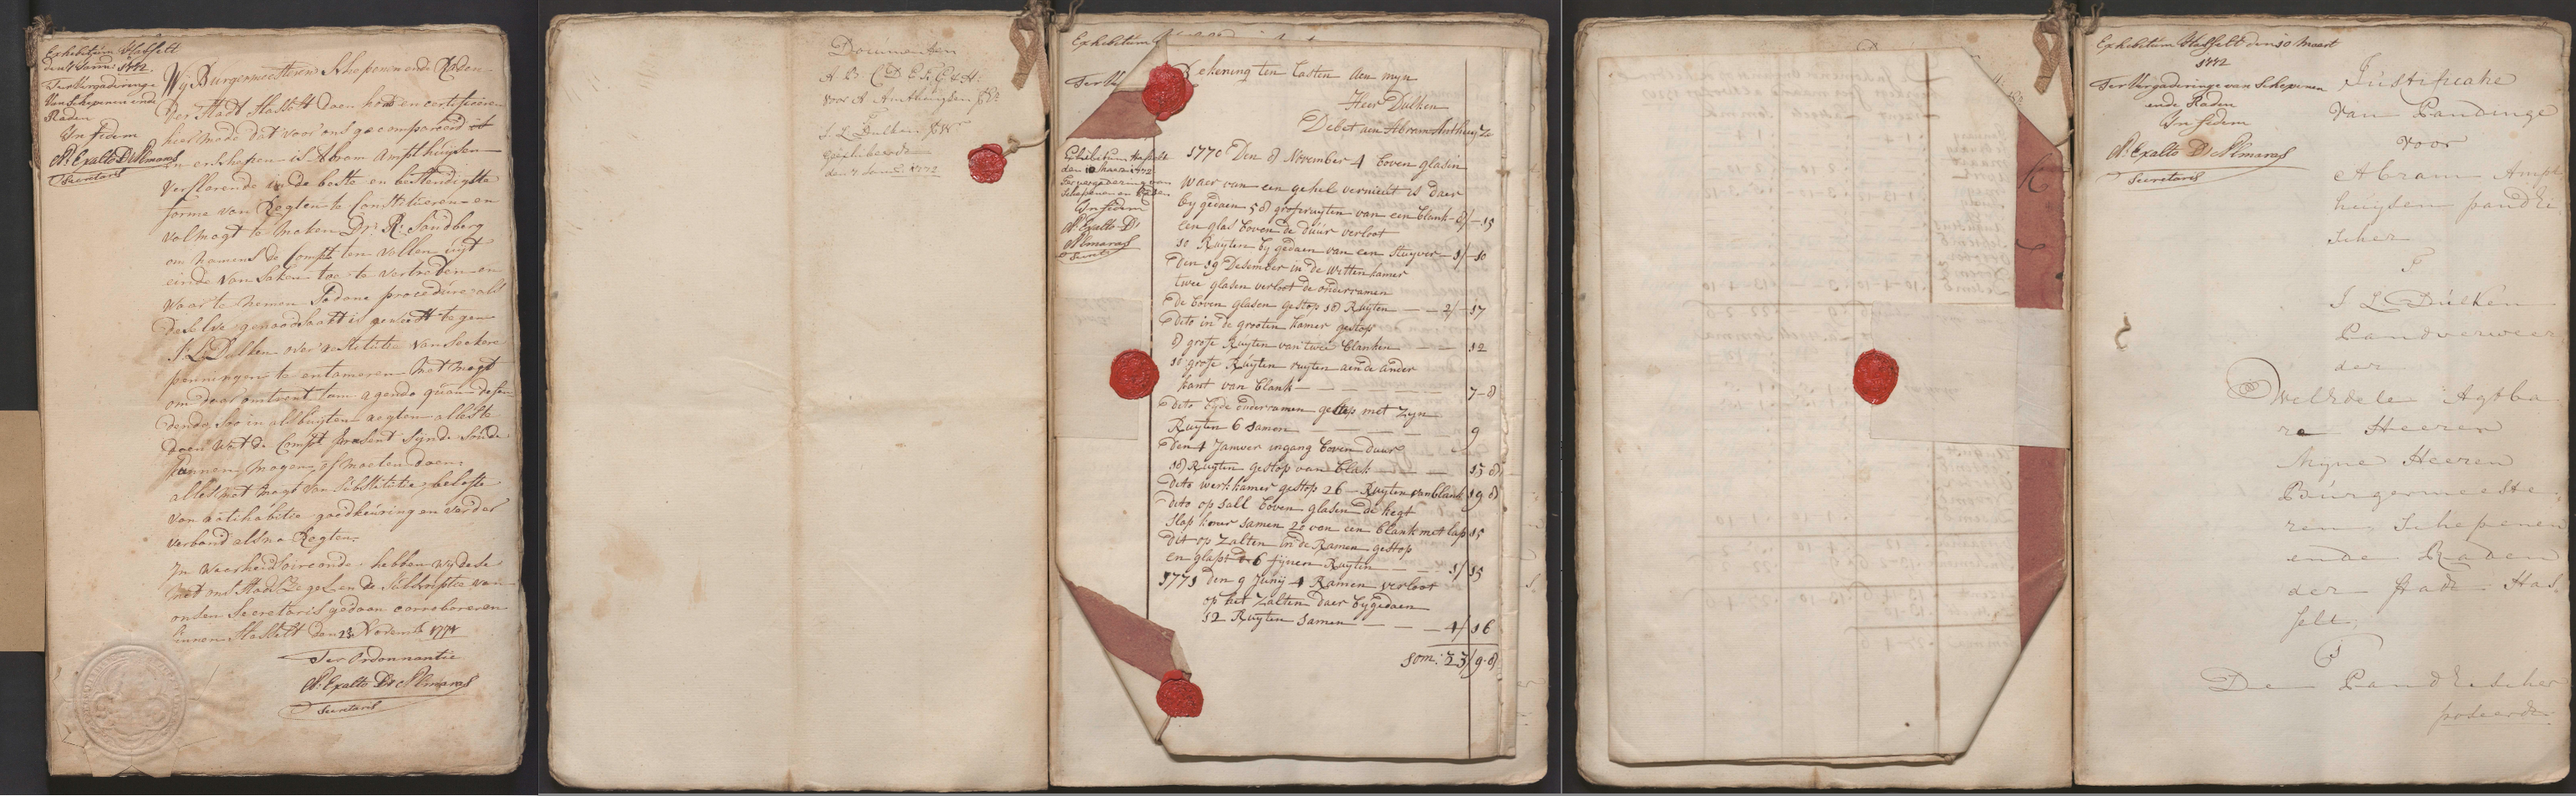 Exhibitum Hasselt
den 7 Janu: 1772.
Ter Vergaderinge
Van Schepenen ende
Raden
In fidem
N: Exalto D'Almaras
Secretaris
Wij Burgermeesteren Schepenen ende Raden
der Stadt Hasselt doen kond en certificeren
hier mede dat voor ons gecompareerd
en erschenen is Abram Ampthuijsen
verklarende in de beste en bestendigste
forme van Regten te Constitueren en
volmagt te maken Dr. R: Sandberg
om namens de Compt ten vollen uijt
einde van saken toe te vertreden en
waar te nemen Sodane procedure als
deselve genoodsaakt is geweest tegen
J: L: Dulken over restitutie van seekere
penningen te entameren Met magt
om daar omtrent tam agendo quam defen
dendo, soo in als buyten regten alles te
doen wat de Compt present sijnde soude
kunnen mogen of moeten doen
alles met magt van substitutie, belofte
van ratihabitie goedkeuring en verder
verband als na Regten.
In waarheids oirconde hebben wij dese
met ons Stads Zegel en de Subscriptie van
onsen Secretaris gedaan corroboreren
binnen Hasselt den 23 Novemb 1771
Ter Ordonnantie
N: Exalto D'Almaras
Secretaris
Documenten
A B: C D E F: G & H:
voor A Amthuijsen
J. L. Dulken
geexhibeerd
den 7 Janu: 1772
Exhibitum
Rekening ten lasten aen myn
Heer Dulken
Debet aen Abram Anthuyze
Exhibitum Hasselt
den 10 Maart 1772
Ter vergadering van
Schepenen en Raden
In fidem
N: Exalto D'
Almaras
Secrets
1770 Den 8 November 4 boven glasin
waer van een gehel vernieut is daer
by gedaen 58 groferuyten van een blank - 8/-15
een glas boven de duur verloot
10 Ruyten by gedaen van een stuyver - 1/-10
Den 19 Desember in de Witten kamer
twee glasen verloot de onderramen
de boven glasen gestop 18 Ruyten - - 2/-17
dito in de grooten kamer gestop
8 grofe Ruyten van twee blanken - - 12
10 grofe Ruyten ruyten aen de ander
kant van blank - - - 7-8
dito byde onderramen gestop met zyn
Ruyten 6 samen - - - 9
Den 4 Januer ingang boven duur
18 Ruyten gestop van blank - - - 15 8
dito werk kamer gestop 26 - Ruyten van blank 19 8
dito op sall boven glasen de hegt
slap kamer samen 20 van een blank met lap 15
dit op Zalten in de Ramen gestop
en glast 6 fynen Ruyten - - 1/15
1771 den 9 Junij 4 Ramen verloot
op het Zalten daer by gedaen
12 Ruyten samen - - - 4/16
som: 23/9-8
Exhibitum Hasselt den 10 Maart
1772
Ter Vergaderinge van Schepenen
ende Raden
In fidem
N: Exalto D'Almaras
Secretaris
Justificatie
van Pandinge
voor
Abram Ampt
huijsen pandei
scher
J L Dulken
Pandverweer
der
WelEdele Agtba
re Heeren
Myne Heeren
Burgermeeste
ren, Schepenen
ende Raden
der stadt Has
selt,
De Pandeischer